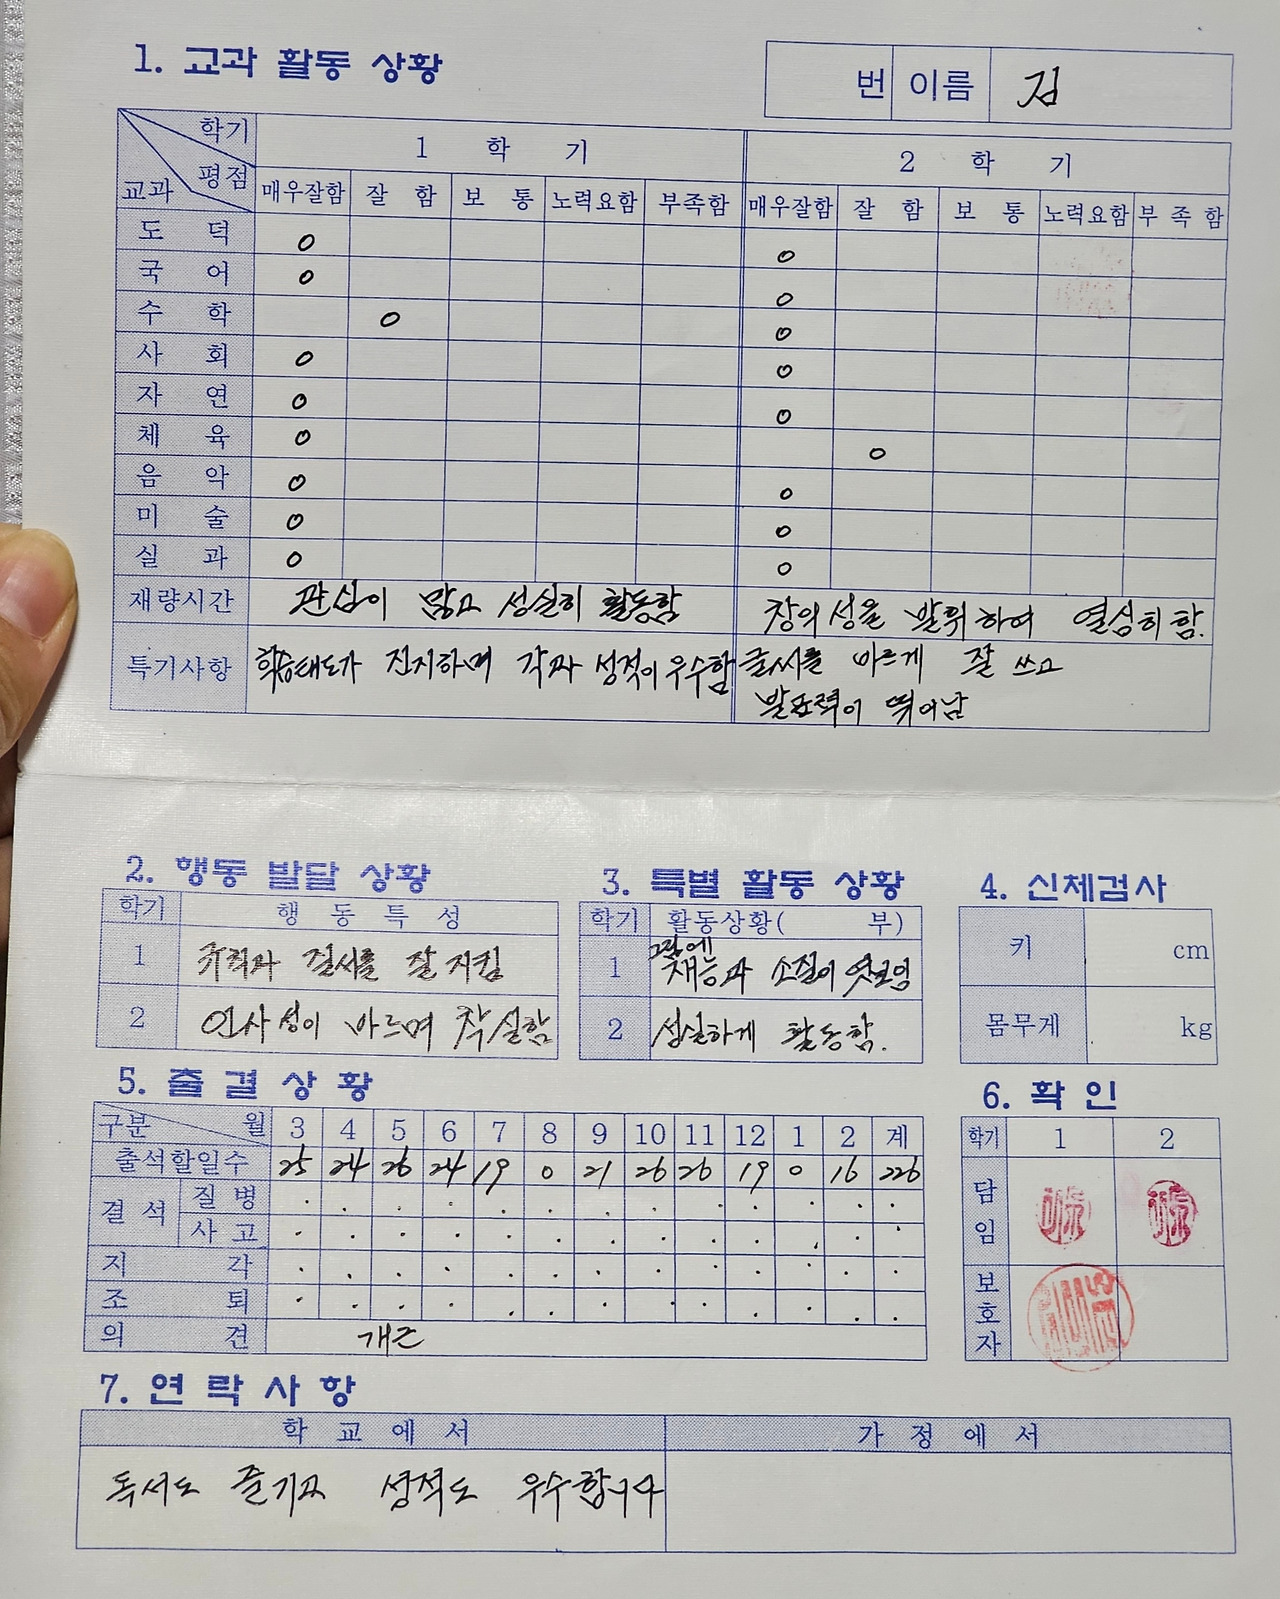 1. 교과 활동 상황
번 이름 김
학기 1 학 기 2 학 기
평점
교과 매우잘함 잘 함 보 통 노력요함 부족함 매우잘함 잘 함 보 통 노력요함 부 족 함
도 덕 o o
국 어 o o
수 학 o o
사 회 o o
자 연 o o
체 육 o o
음 악 o o
미 술 o o
실 과 o o
재량시간 관심이 많고 성실히 활동함 창의성을 발휘하여 열심히 함.
특기사항 학습태도가 진지하며 각과 성적이 우수함 글씨를 바르게 잘 쓰고
발표력이 뛰어남
2. 행동 발달 상황
학기 행 동 특 성
1 규칙과 질서를 잘 지킴
2 인사성이 바르며 착실함
3. 특별 활동 상황
학기 활동상황( 부)
그림에
1 재능과 소질이 엿보임
2 성실하게 활동함.
4. 신체검사
키 cm
몸무게 kg
5. 출 결 상 황
구분 월 3 4 5 6 7 8 9 10 11 12 1 2 계
출석할일수 25 24 26 24 19 0 21 26 26 19 0 16 226
결 석 질 병 . . . . . . . . . . . . .
사 고 . . . . . . . . . . . . .
지 각 . . . . . . . . . . . . .
조 퇴 . . . . . . . . . . . . .
의 견 개근
6. 확 인
학기 1 2
담임
보호자
7. 연 락 사 항
학 교 에 서 가 정 에 서
독서도 즐기고 성적도 우수합니다